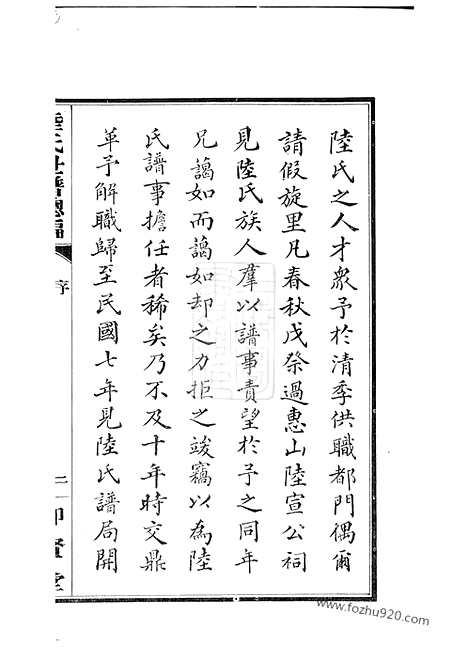 陸氏之人才衆予於清季供職都門偶爾
請假旋里凡春秋戊祭過惠山陸宣公祠
見陸氏族人羣以譜事責望於予之同年
兄藹如而藹如却之力拒之竣竊以為陸
氏譜事擔任者稀矣乃不及十年時交鼎
革予解職歸至民國七年見陸氏譜局開
序
二
www.fozhu920.com